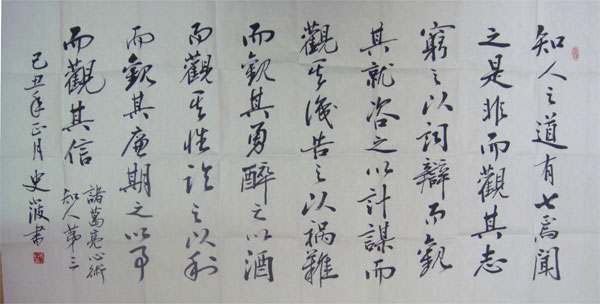 知人之道有七焉聞
之是非而觀其志
窮之以詞辯而觀
其咨之以計謀而
觀其識告之以禍難
而觀其勇醉之以酒
而觀其性之以利
而觀其廉期之以事
而觀其信
諸葛亮心術
知人第三
己丑年正月史書